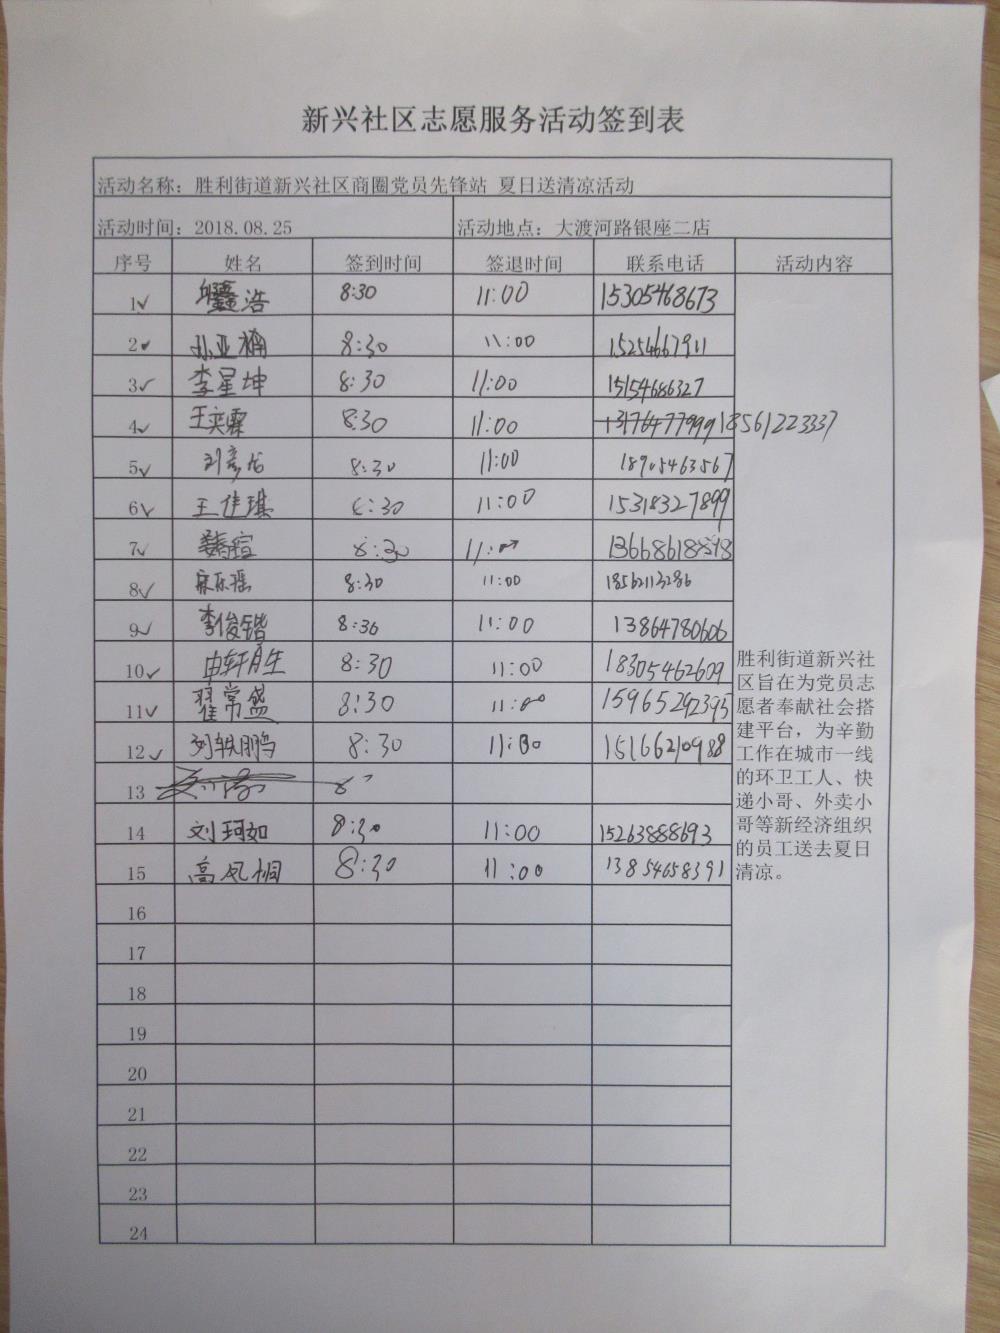 新兴社区志愿服务活动签到表
活动名称：胜利街道新兴社区商圈党员先锋站 夏日送清凉活动
活动时间：2018.08.25 活动地点：大渡河路银座二店
序号 姓名 签到时间 签退时间 联系电话 活动内容
1✓ 浩 8:30 11:00 15305468673
2✓ 孙亚楠 8:30 11:00 15254667911
3✓ 李星坤 8:30 11:00 15154686327
4✓ 王奕霖 8:30 11:00 18561223337
5✓ 刘彦龙 8:30 11:00 18905463567
6✓ 王佳琪 8:30 11:00 15318327899
7✓ 8:30 11:00
8✓ 8:30 11:00 18562113286
9✓ 李俊锴 8:30 11:00 13864780606
10✓ 8:30 11:00 18305462609
11✓ 翟常盛 8:30 11:00 15965292395
12✓ 刘轶鹏 8:30 11:30 15166210988
13
14 刘珂如 8:30 11:00 15263888693
15 高凤桐 8:30 11:00 13854658391
胜利街道新兴社
区旨在为党员志
愿者奉献社会搭
建平台，为辛勤
工作在城市一线
的环卫工人、快
递小哥、外卖小
哥等新经济组织
的员工送去夏日
清凉。
16
17
18
19
20
21
22
23
24